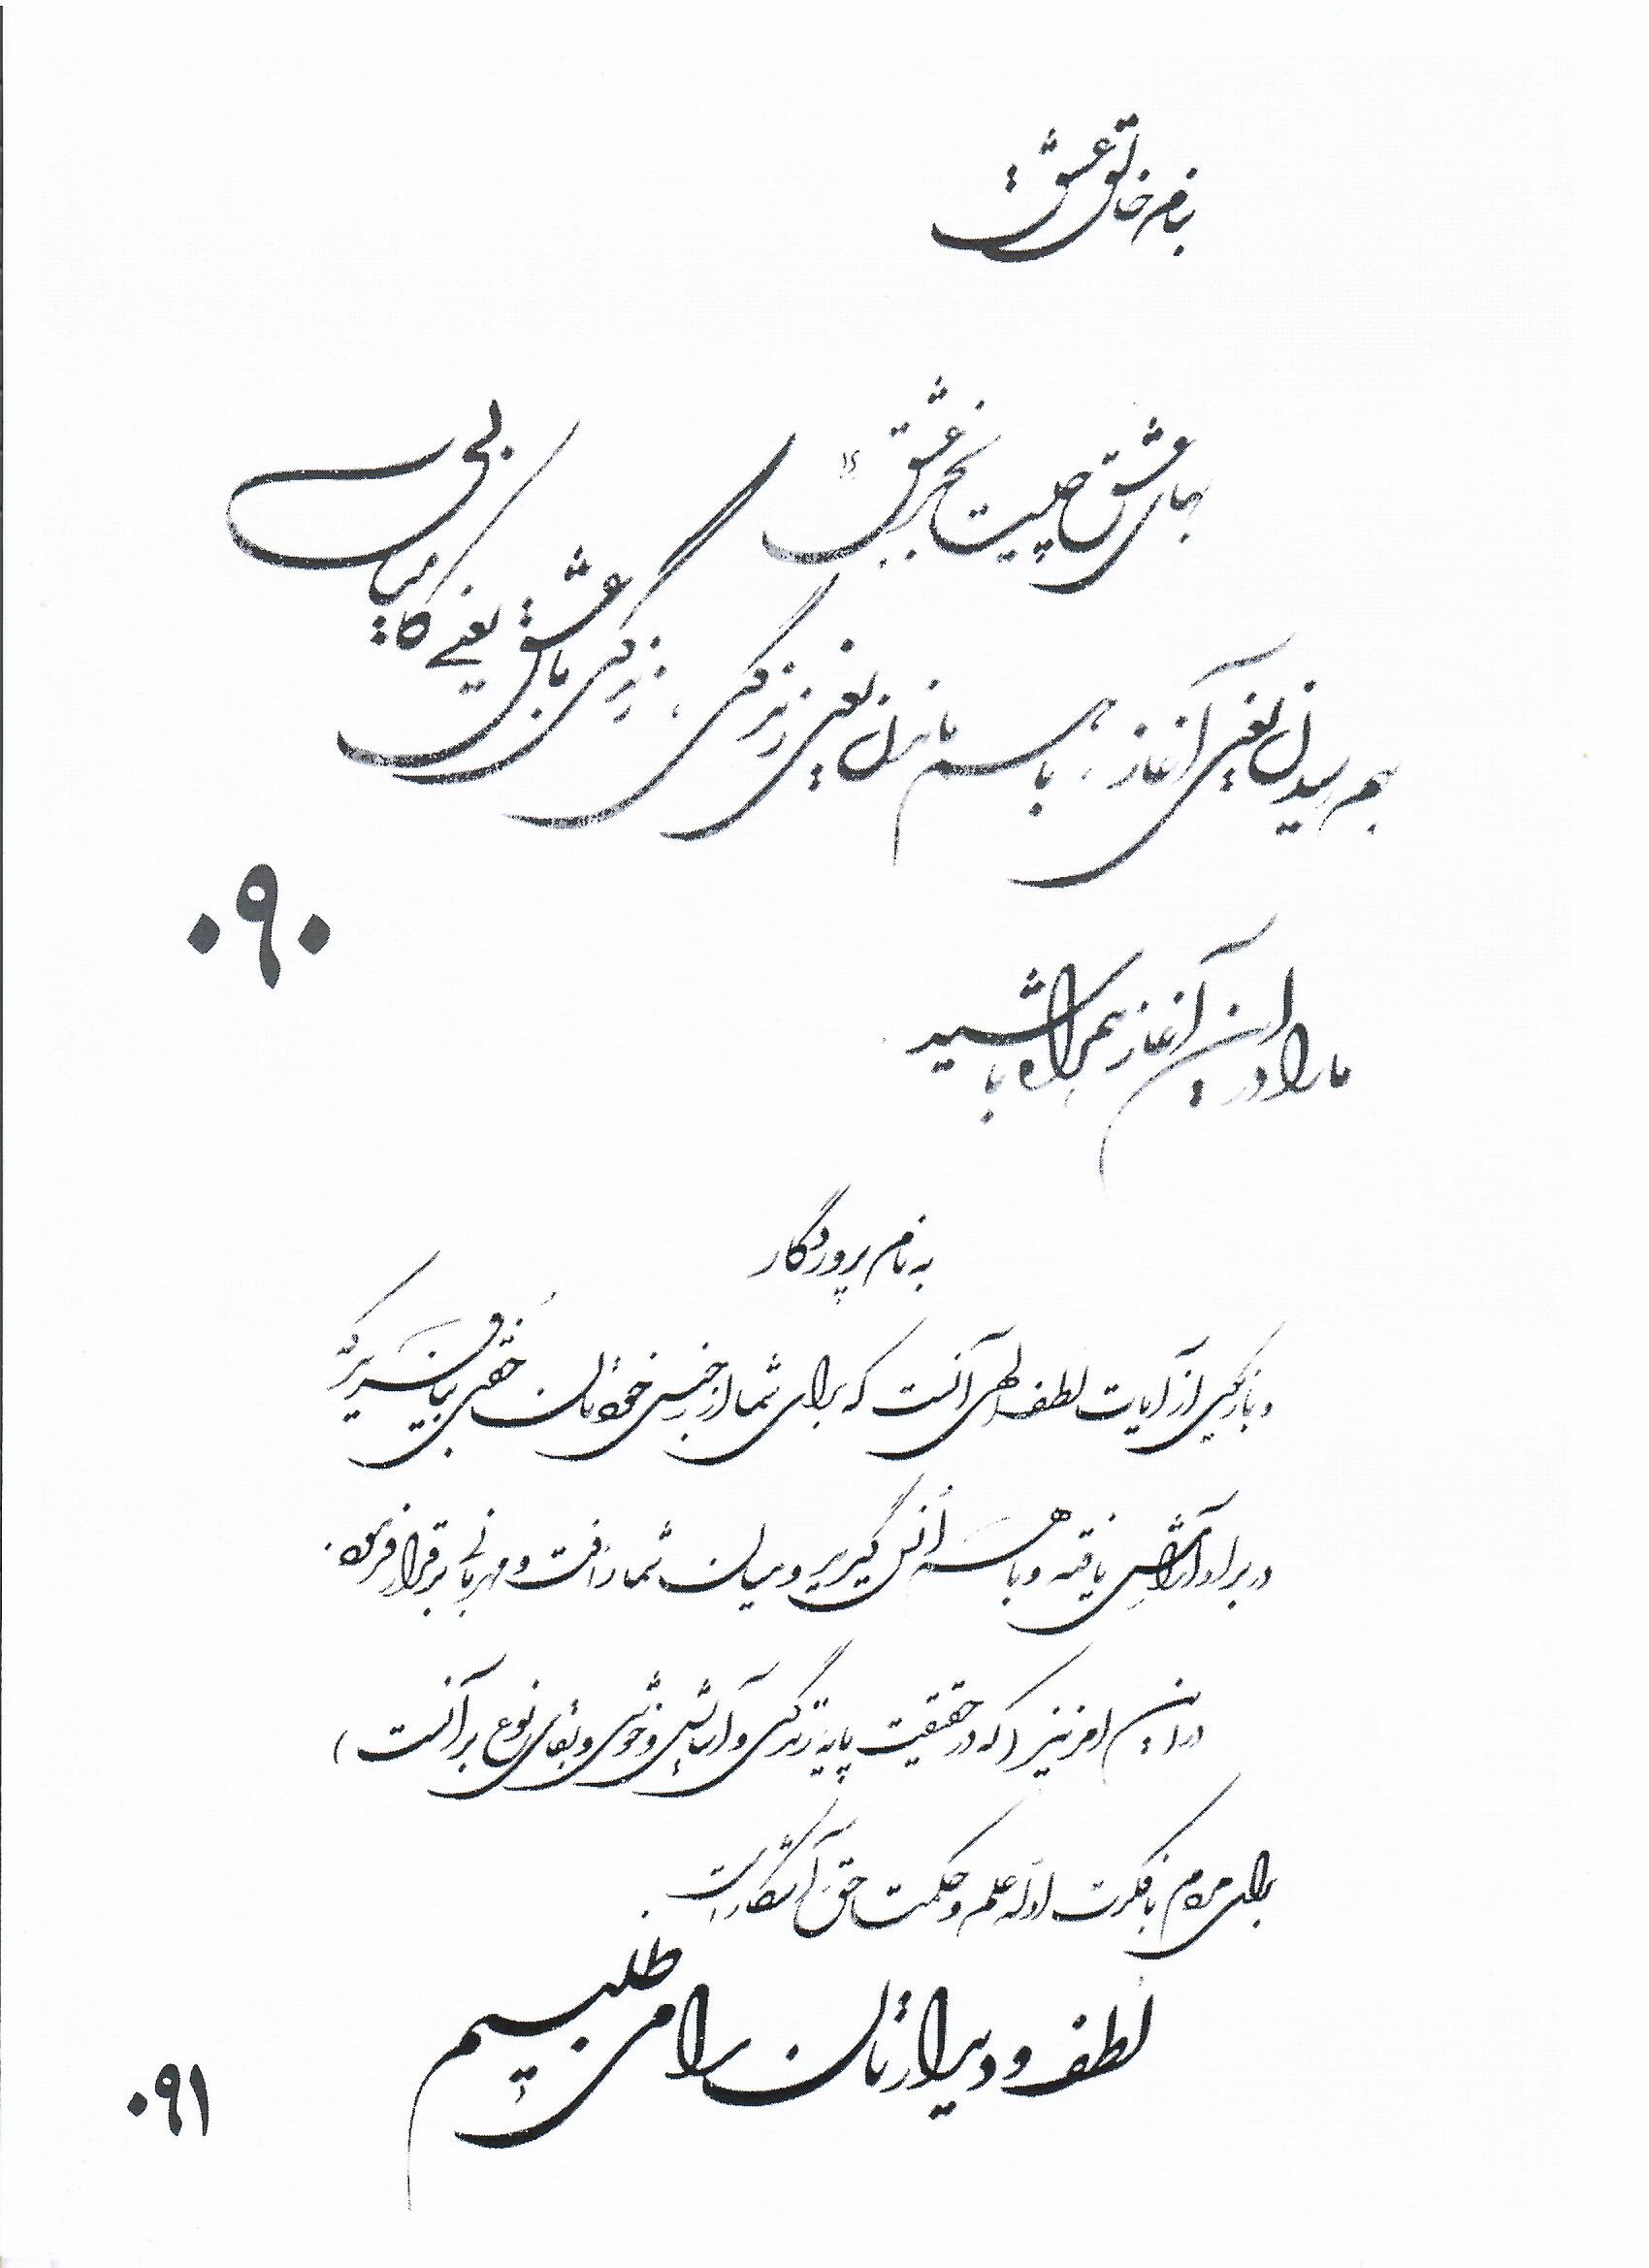 بنام خالق عشق
بهای عشق چیست بجز عشق
بهم رسیدن یعنی آغاز، باهم ماندن یعنی زندگی، زندگی با عشق یعنی کامیابی
۰۹۰
ما را در این آغاز همراه باشید
به نام پروردگار
و باز یکی از آیات لطف الهی آنست که برای شما از جنس خودتان جفتی بیافرید که
در بر او آرامش یافته و با هم انس گیرید و میان شما رافت و مهربانی برقرار فرمود.
در این امر نیز (که در حقیقت پایه زندگی و آسایش و خوشی و بقای نوع بر آنست)
برای مردم با فکرت ادله علم و حکمت حق آشکار است
لطف دیدارتان را می طلبیم
۰۹۱